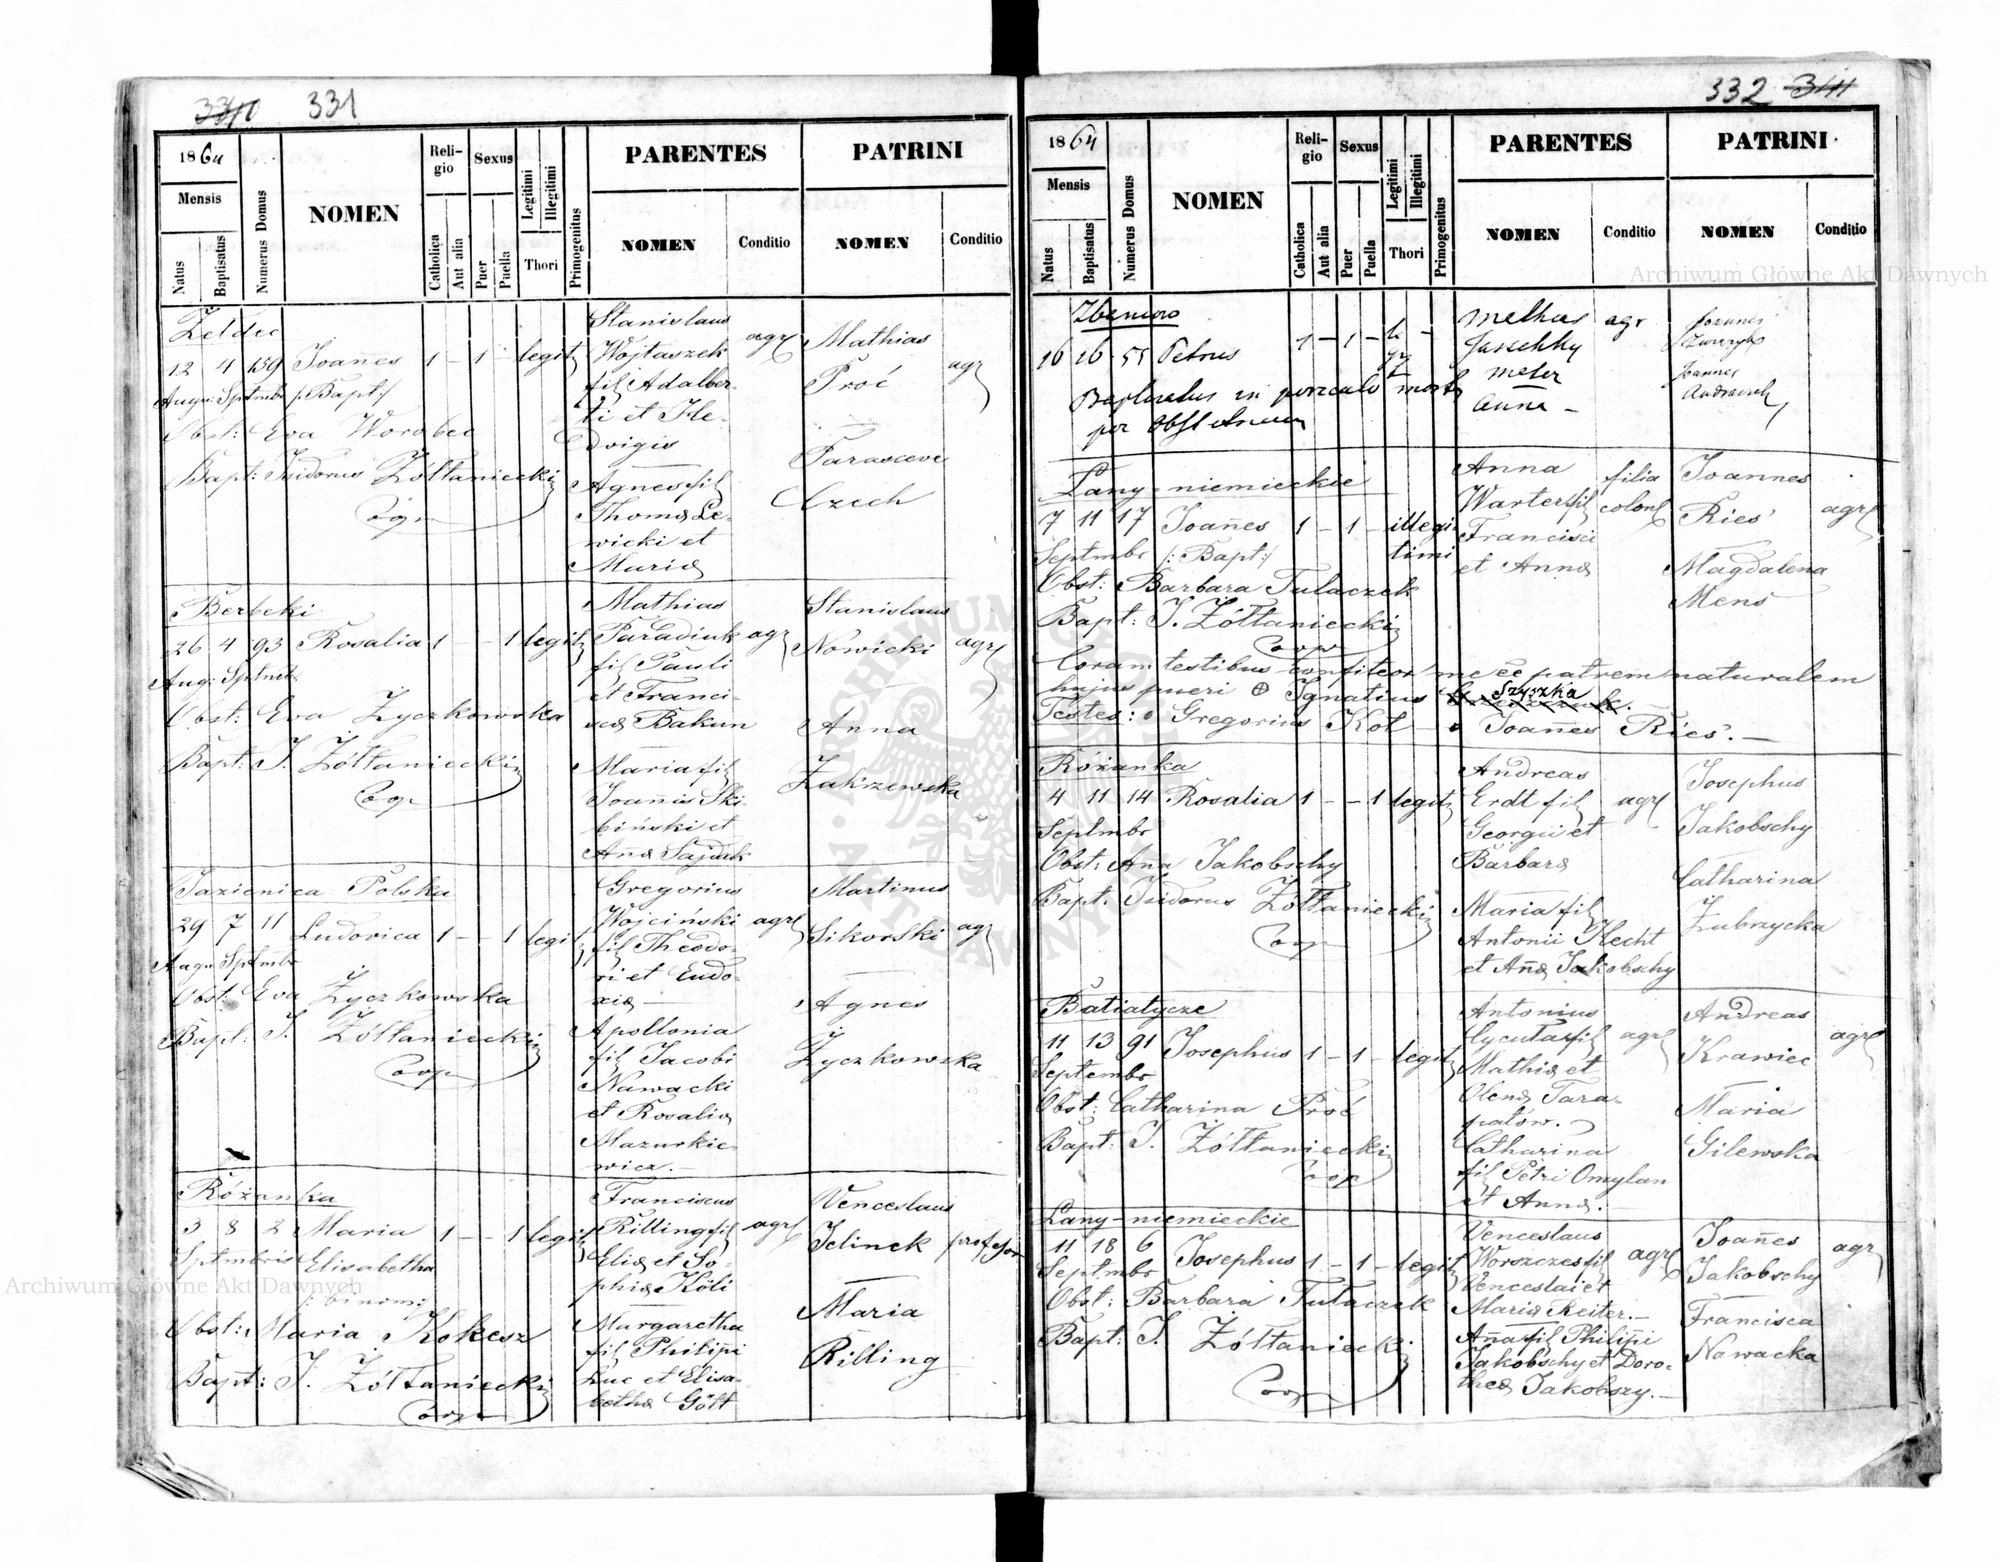 3340 331
1864
Mensis
Natus
Baptisatus
Numerus Domus
NOMEN
Religio
Catholica
Aut alia
Sexus
Puer
Puella
Legitimi
Illegitimi
Thori
Primogenitus
PARENTES
NOMEN
Conditio
PATRINI
NOMEN
Conditio
Żeldec
12 4 159 Joanes 1 – 1 – legit
Augu: Sptmbr /: Bapt:/
Obst: Eva Worobec
Bapt: Isidorus Żółtaniecki
Coop
Stanislaus
Wojtaszek
fil Adalber-
ti et He-
dvigis
agr
Agnes fil
Thomæ Le-
wicki et
Mariæ
Mathias
Proć
agr
Parasceve
Czech
Berbeki
26 4 93 Rosalia 1 – – 1 legit
Aug: Sptmb
Obst: Eva Życzkowska
Bapt: I. Żółtaniecki
Coop
Mathias
Paradiuk agr
fil Pauli
et Franci-
scæ Bakun
Maria fil
Joannis Ski-
biński et
Anæ Sajduk
Stanislaus
Nowicki agr
Anna
Zakrzewska
Jazienica Polska
29 7 11 Ludovica 1 – – 1 legit
Augu Sptmbr
Obst: Eva Życzkowska
Bapt: I. Żółtaniecki
Coop
Gregorius
Wojciński agr
fil Theodo-
ri et Eudo-
xiæ
Apollonia
fil Jacobi
Nawacki
et Rosaliæ
Mazurkie-
wicz.
Martinus
Sikorski agr
Agnes
Życzkowska
Różanka
3 8 2 Maria 1 – – 1 legit
Sptmbris Elisabetha
/: binom:
Obst: Maria Kokesz
Bapt: I. Żółtaniecki
Coop
Franciscus
Rilling fil agr
Eliæ et So-
phiæ Köli
Margaretha
fil Philipi
Luc et Elisa-
bethæ Gött
Venceslaus
Jelinek professor
Maria
Rilling
332 341
1864
Mensis
Natus
Baptisatus
Numerus Domus
NOMEN
Religio
Catholica
Aut alia
Sexus
Puer
Puella
Legitimi
Illegitimi
Thori
Primogenitus
PARENTES
NOMEN
Conditio
PATRINI
NOMEN
Conditio
16 16 55 Petrus 1 – 1 –
mortis
per
agr
Anna –
Joannes
Joannes
Łany-niemieckie
7 11 17 Joañes 1 – 1 – illegi-
timi
Septmbr /: Bapt:/
Obst: Barbara Tulaczek
Bapt: I. Żółtaniecki
Coop
Anna
Warter fil
Francisci
et Annæ
filia
colon
Joannes
Ries agr
Magdalena
Mens
Coram testibus confiteor me eē patrem naturalem
hujus pueri ⊕ Ignatius Szyszka
Testes: o Gregorius Kot – o Joañes Ries. –
Różanka
4 11 14 Rosalia 1 – – 1 legit
Septmbr
Obst: Aña Jakobschy
Bapt. Isidorus Żółtaniecki
Coop
Andreas
Erdt fil agr
Georgii et
Barbaræ
Maria fil
Antonii Hecht
et Añæ Jakobschy
Josephus
Jakobschy
Catharina
Zubrzycka
Batiatycze
11 13 91 Josephus 1 – 1 – legit
Septembr
Obst: Catharina Proć
Bapt: I. Żółtaniecki
Coop
Antonius
Cycuta fil agr
Mathiæ et
Olenæ Tara-
patów.
Catharina
fil Petri Omylan
et Annæ.
Andreas
Krawiec agr
Maria
Gilewska
Łany-niemieckie
11 18 6 Josephus 1 – 1 – legit
Septmbr
Obst: Barbara Tulaczek
Bapt: I. Żółtaniecki
Coop
Venceslaus
Worszczes fil agr
Venceslai et
Mariæ Reiter. –
Aña fil Philipi
Jakobschy et Doro-
theæ Jakobszy. –
Joañes
Jakobschy agr
Francisca
Nawacka
Archiwum Główne Akt Dawnych
Archiwum Główne Akt Dawnych
ARCHIWUM GŁÓWNE AKT DAWNYCH